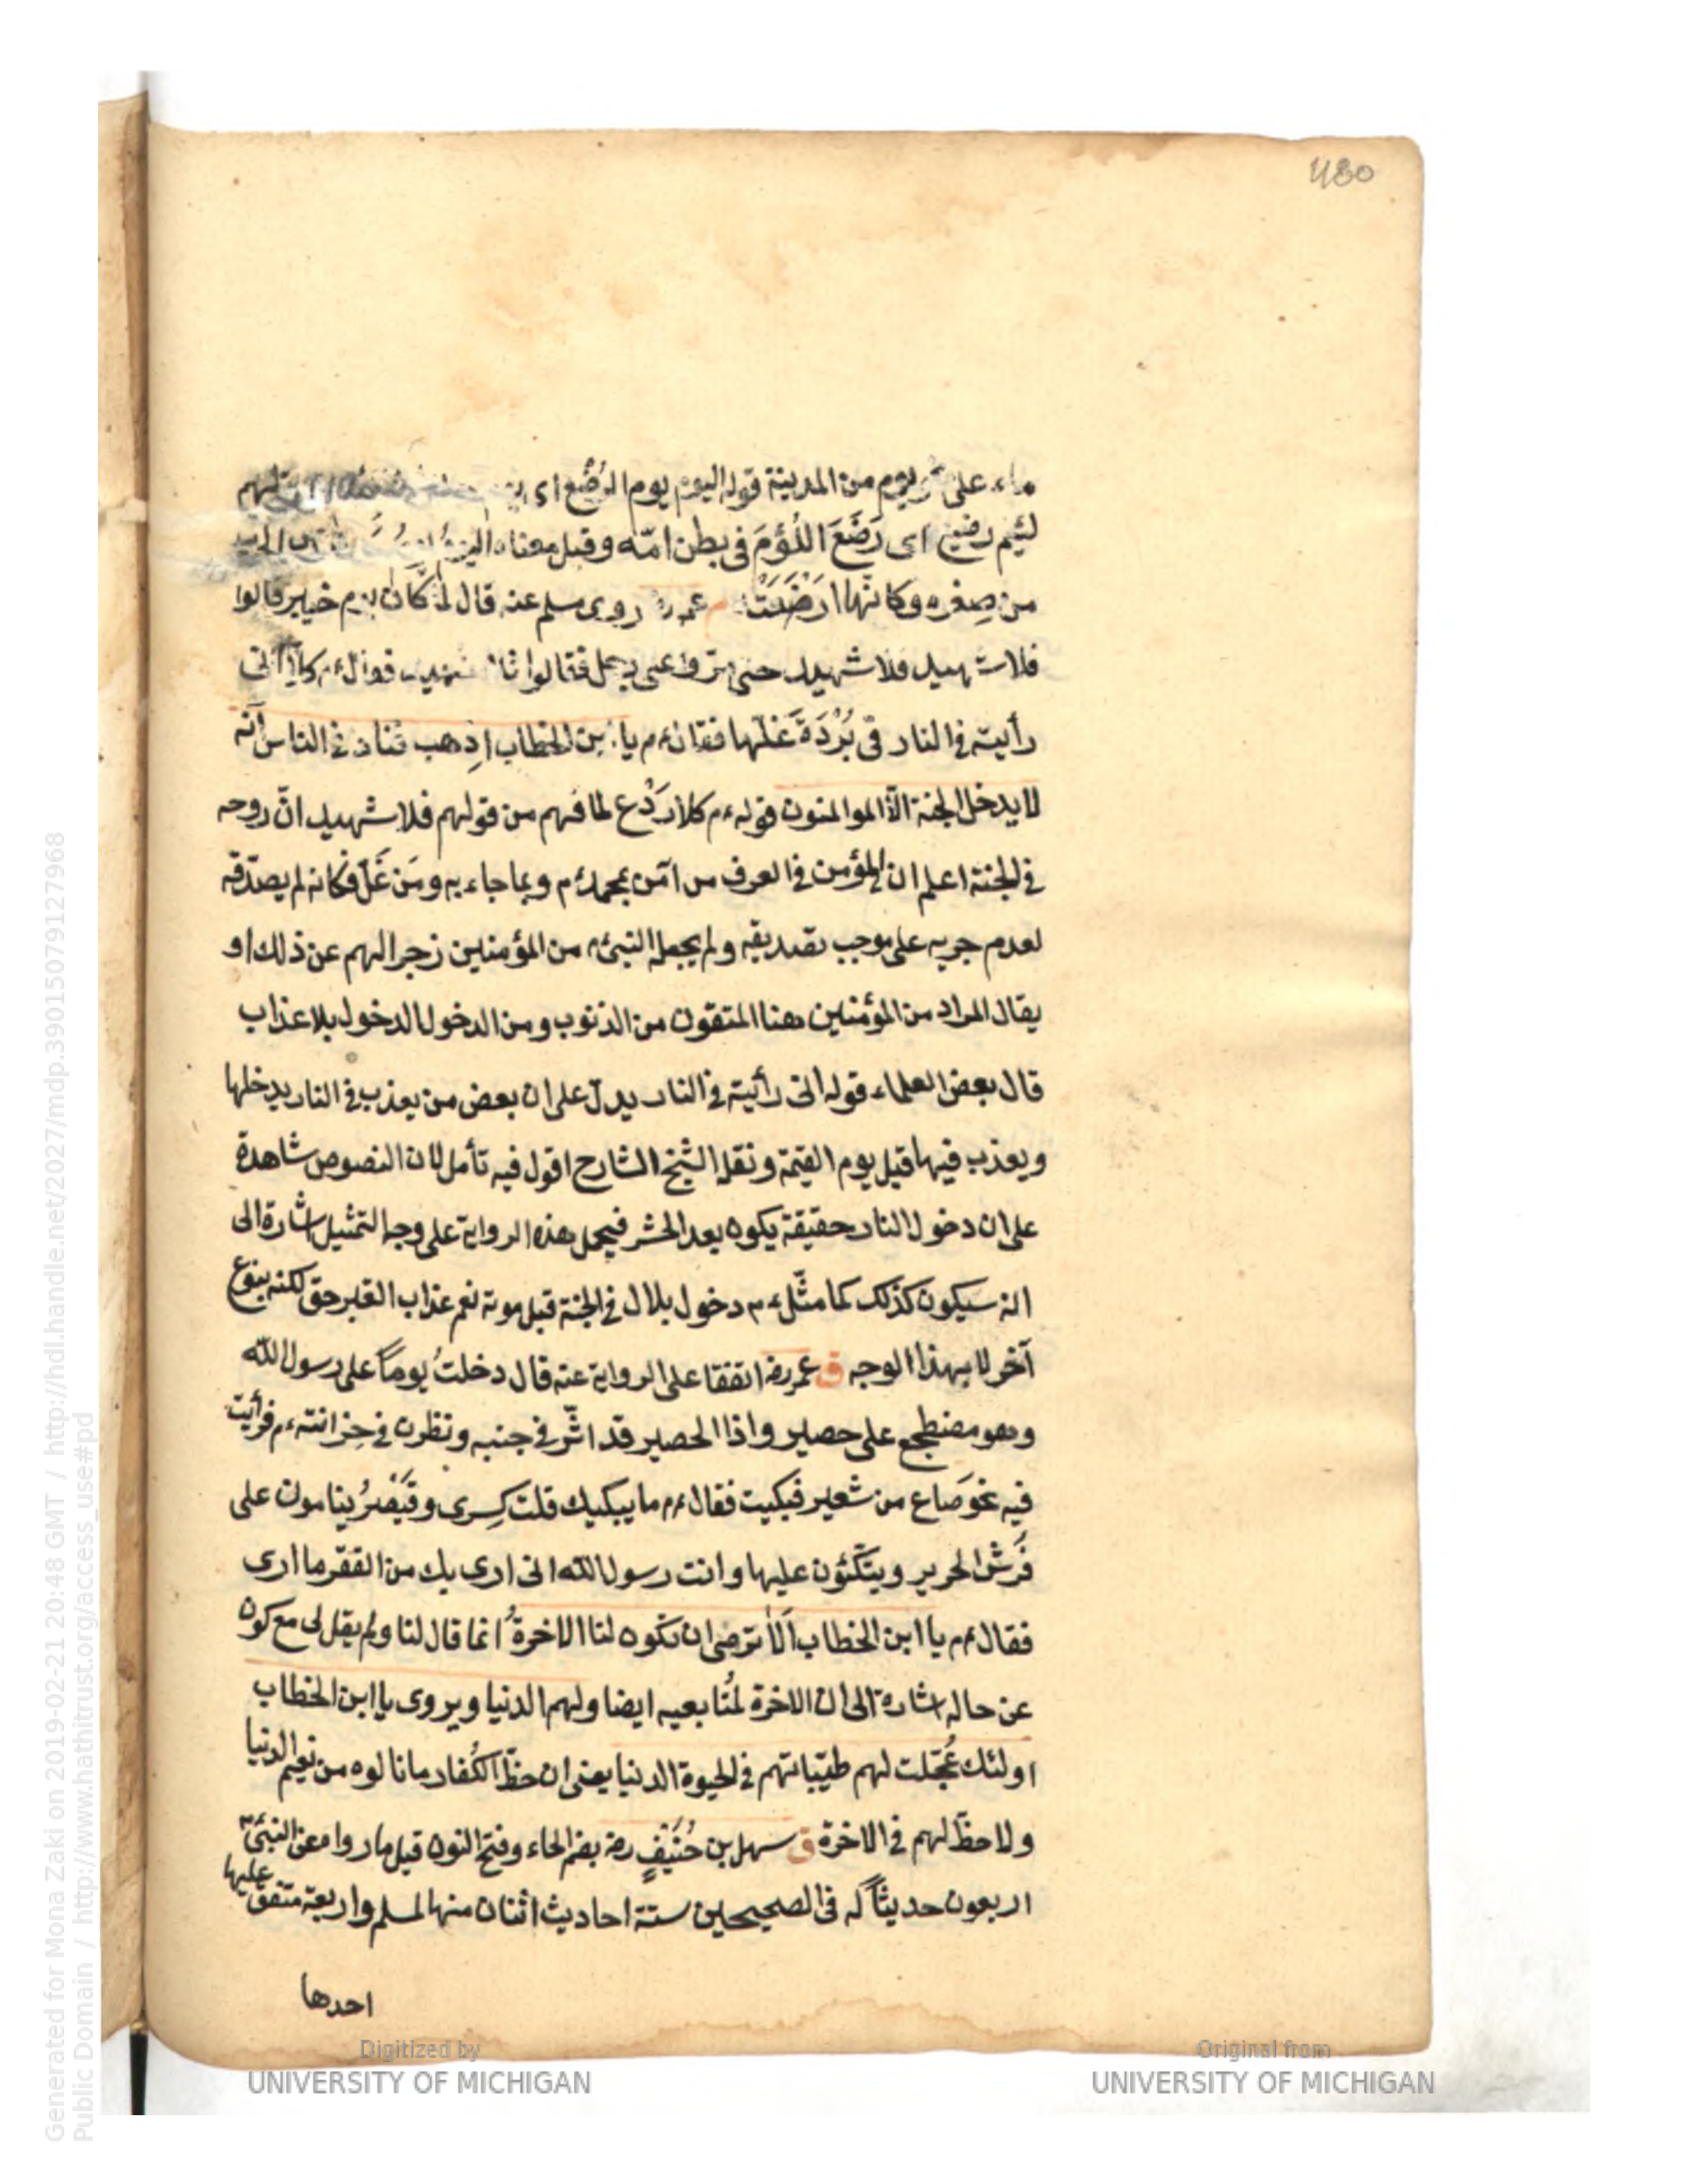 480
ماء على نحو يوم من المدينة قوله اليوم يوم الرُضَّع اى
لئيم رضيع اى رَضَعَ اللُؤمَ فى بطن امّه وقيل معناه اليوم
من صِغره وكانّها ارضَعَتْ م عمر رضـ روى مسلم عنه قال لمّا كان يوم خيبر قالوا
فلا شهيد فلا شهيد حتى مرّوا على رجل فقالوا فلا شهيد فقال ءم كلّا انّى
رأيته فى النار فى بُرْدَة غَلّها فقال ءم يا ابن الخطاب اِذهب فناد فى الناس انّه
لا يدخل الجنة الّا الموالمنون قوله ءم كلا رَدْع لما فهم من قولهم فلا شهيد انّ روحه
فى الجنة اعلم ان المؤمن فى العرف من آمن بمحمد ءم وبما جاء به ومَن غَلّ فكانه لم يصدّقه
لعدم جريه على موجب تصديقه ولم يجعله النبى ءم من المؤمنين زجرا لهم عن ذلك او
يقال المراد من المؤمنين هنا المتقون من الذنوب ومن الدخول الدخول بلا عذاب
قال بعض العلماء قوله انى رأيته فى النار يدلّ على ان بعض من يعذب فى النار يدخلها
ويعذب فيها قيل يوم القيمة ونقله الشيخ الشارح اقول فيه تأمل لان النصوص شاهدة
على ان دخول النار حقيقة يكون بعد الحشر فيحمل هذه الرواية على وجه التمثيل اشارة الى
انه سيكون كذلك كما مثّل ءم دخول بلال فى الجنة قبل موته نعم عذاب القبر حق لكنه بنوع
آخر لا بهذا الوجه ق عمر رضـ اتفقا على الرواية عنه قال دخلتُ يوماً على رسول الله
وهو مضطجع على حصير واذا الحصير قد اثّر فى جنبه ونظرت فى خزانته ءم فرأيت
فيه نحو صَاع من شعير فبكيت فقال ءم ما يبكيك قلت كِسرى وقَيْصَرُ ينامون على
فُرُش الحرير ويتّكئون عليها وانت رسول الله انى ارى بك من الفقر ما ارى
فقال ءم يا ابن الخطاب اَلَا ترضى ان تكون لنا الاخرةُ انما قال لنا ولم يقل لى مع كون
عن حاله اشارة الى ان الاخرة لمُتابعيه ايضا ولهم الدنيا ويروى يا ابن الخطاب
اولئك عُجّلت لهم طيّباتهم فى الحيوة الدنيا يعنى ان حظّ الكُفار ما نالوه من نعيم الدنيا
ولا حظّ لهم فى الاخرة ق سهل بن حُنَيفٍ رضـ بضم الحاء وفتح النون قيل ما رواه عن النبى ءم
اربعون حديثاً له فى الصحيحين ستة احاديث اثنان منها لمسلم واربعة متفق عليها
احدها
Generated for Mona Zaki on 2019-02-21 20:48 GMT / http://hdl.handle.net/2027/mdp.39015079127968
Public Domain / http://www.hathitrust.org/access_use#pd
Digitized by
UNIVERSITY OF MICHIGAN
Original from
UNIVERSITY OF MICHIGAN